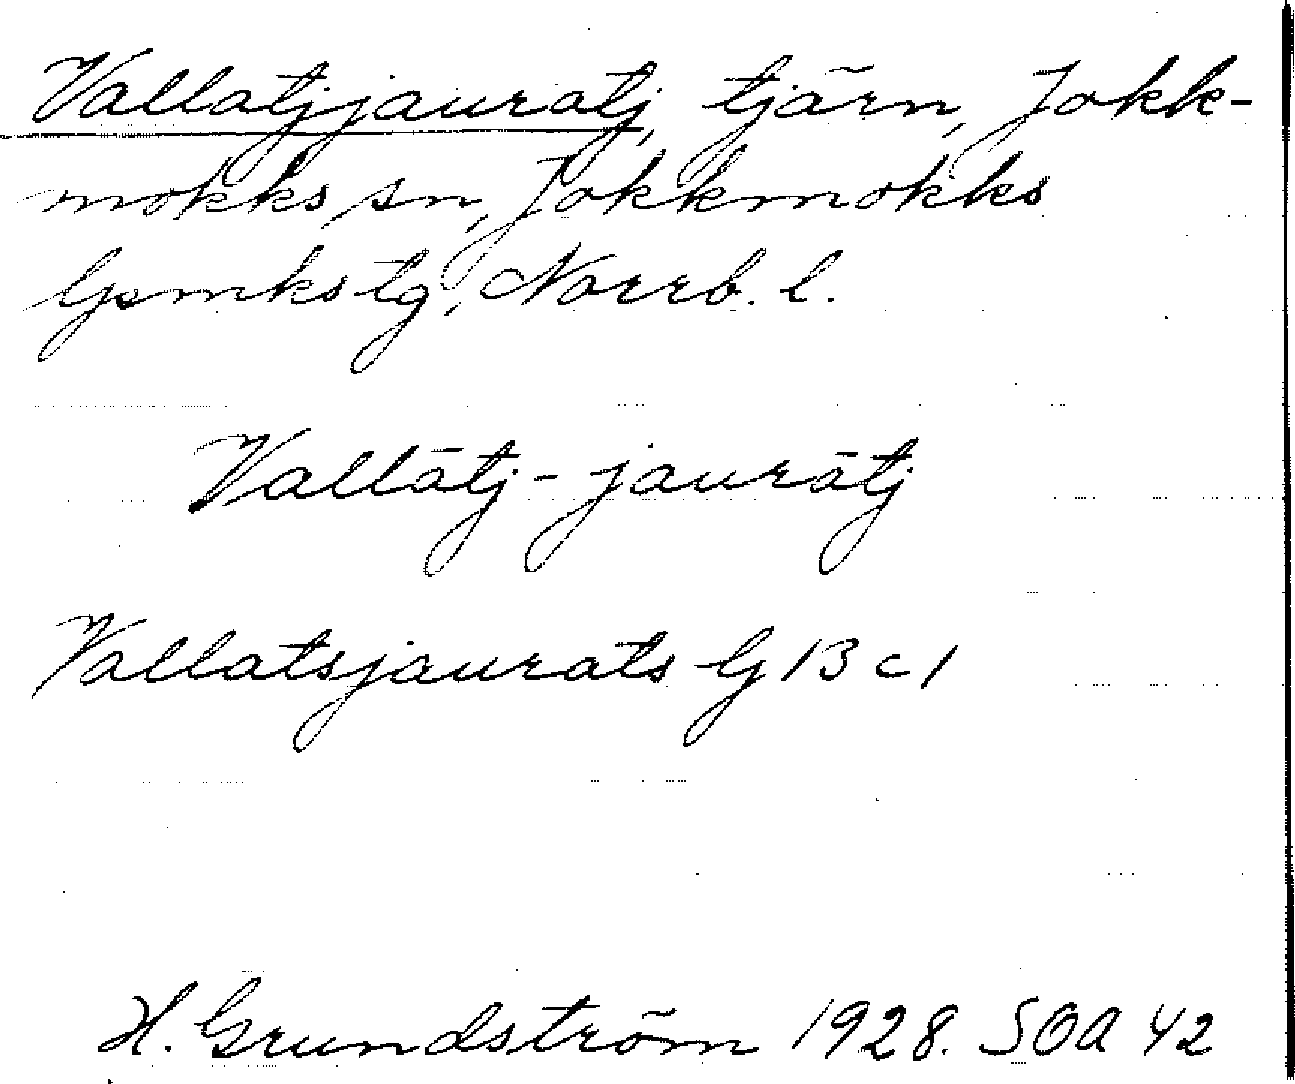 Vallatjjauratj, tjärn, Jokk-
mokks sn, Jokkmokks
lpmkstg, Norrb. l.
Vallātj-jaurātj
Vallatsjaurats G 13 c 1
H. Grundström 1928. SOA 42